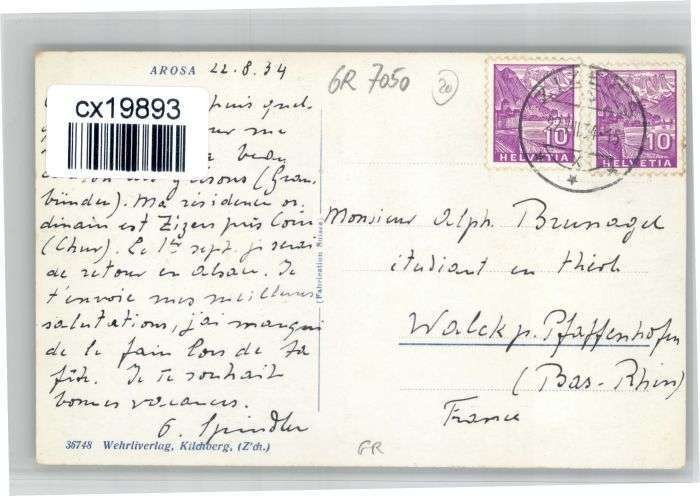 AROSA 22.8.34
GR 7050 20
cx19893
puis quel-
me
beau
Grisons (Grau-
bünden). Ma résidence or-
dinaire est Zizers près Coire
(Chur). Le 1er sept. je serai
de retour en Alsace. Je
t'envoie mes meilleures
salutations, j'ai manqué
de le faire lors de ta
fête. Je te souhait
bonnes vacances.
G. Spindler
36748 Wehrliverlag, Kilchberg, (Z'ch.)
(Fabrication Suisse)
10 HELVETIA
10 HELVETIA
ZIZERS
Monsieur Alph. Brunagel
étudiant en théol.
Walck p. Pfaffenhofen
(Bas-Rhin)
France
GR